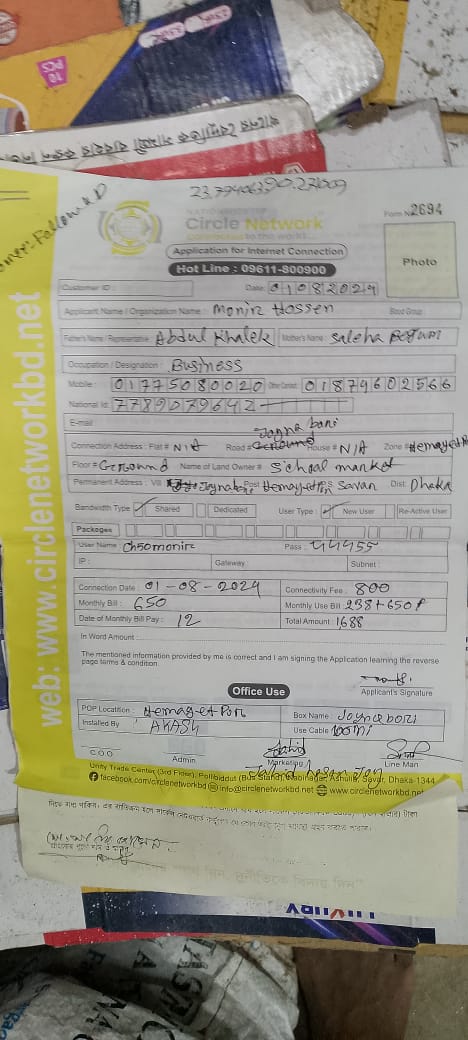 10 PCS
23.7940639 0.27009
NATIONWIDE ISP
Circle Network
connected to the world...
Form No 2694
Application for Internet Connection
Hot Line : 09611-800900
Photo
Customer ID : Date: 01082024
Applicant Name / Organization Name : Monir Hossen Blood Group :
Father's Name / Representative : Abdul Khalek Mother's Name : Saleha Begum
Occupation / Designation : Business
Mobile : 01775080020 Other Contact : 01879602566
National Id: 7789079642
E-mail
Joyna bari
Connection Address : Flat # N/A Road # House # N/A Zone # Hemayetpur
Floor # Ground Name of Land Owner # School market
Permanent Address : Vill Post Hemayetpur PS Savar Dist: Dhaka
Bandwidth Type Shared Dedicated User Type : New User Re-Active User
Packages
User Name : Ch50monir Pass : 44455
IP : Gateway : Subnet :
Connection Date : 01-08-2024 Connectivity Fee : 800
Monthly Bill : 650 Monthly Use Bill 238+650
Date of Monthly Bill Pay : 12 Total Amount : 1688
In Word Amount :
The mentioned information provided by me is correct and I am signing the Application learning the reverse
page terms & condition
Applicant's Signature
Office Use
POP Location : Hemayet Pur Box Name : Joynabori
Installed By : AKASH Use Cable 100mi
C O O Admin Marketing Line Man
Unity Trade Center (3rd Floor), Pollibiddut (Bus Stand), Nabinagar, Ashulia, Savar, Dhaka-1344
facebook.com/circlenetworkbd info@circlenetworkbd.net www.circlenetworkbd.net
web: www.circlenetworkbd.net